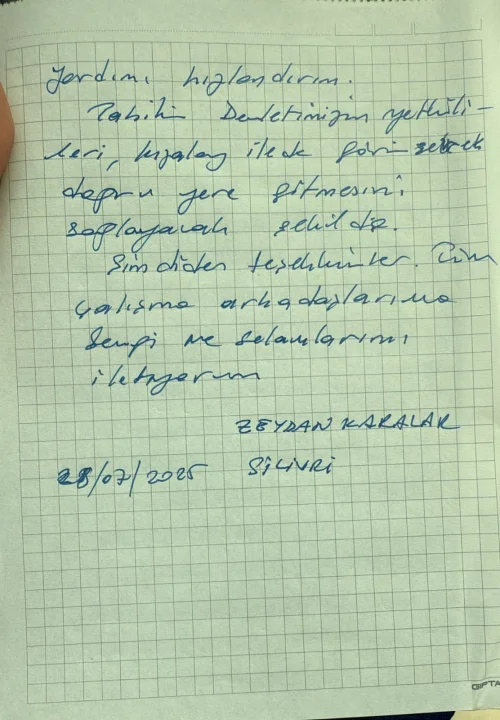 Yardımı hızlandırın.
Tabiki Devletimizin yetkili-
leri, kızılay ile görüşerek
doğru yere gitmesini
sağlayacak şekilde.
Şimdiden teşekkürler. Tüm
çalışma arkadaşlarıma
Sevgi ve selamlarımı
iletiyorum
ZEYDAN KARALAR
28/07/2025 SİLİVRİ
GIPTA